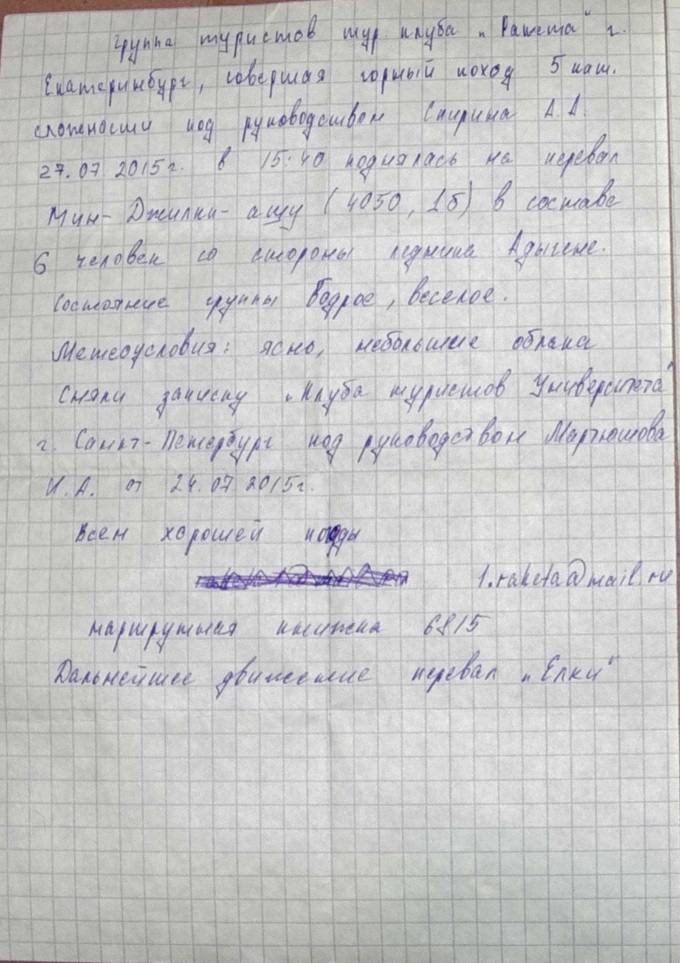 группа туристов тур клуба „Ракета" г.
Екатеринбург, совершая горный поход 5 кат.
сложности под руководством Спирина А.А.
27.07 2015г. в 15.40 поднялась на перевал
Мин-Джилки-ашу (4050, 1б) в составе
6 человек со стороны ледника Адыгене.
Состояние группы бодрое, веселое.
Метеоусловия: ясно, небольшие облака
Сняли записку „Клуба туристов Университета"
г. Санкт-Петербург под руководством Мартюшова
И.А. от 24.07 2015г.
Всем хорошей погоды
1.raketa@mail.ru
маршрутная книжка 6815
Дальнейшее движение перевал „Елки"